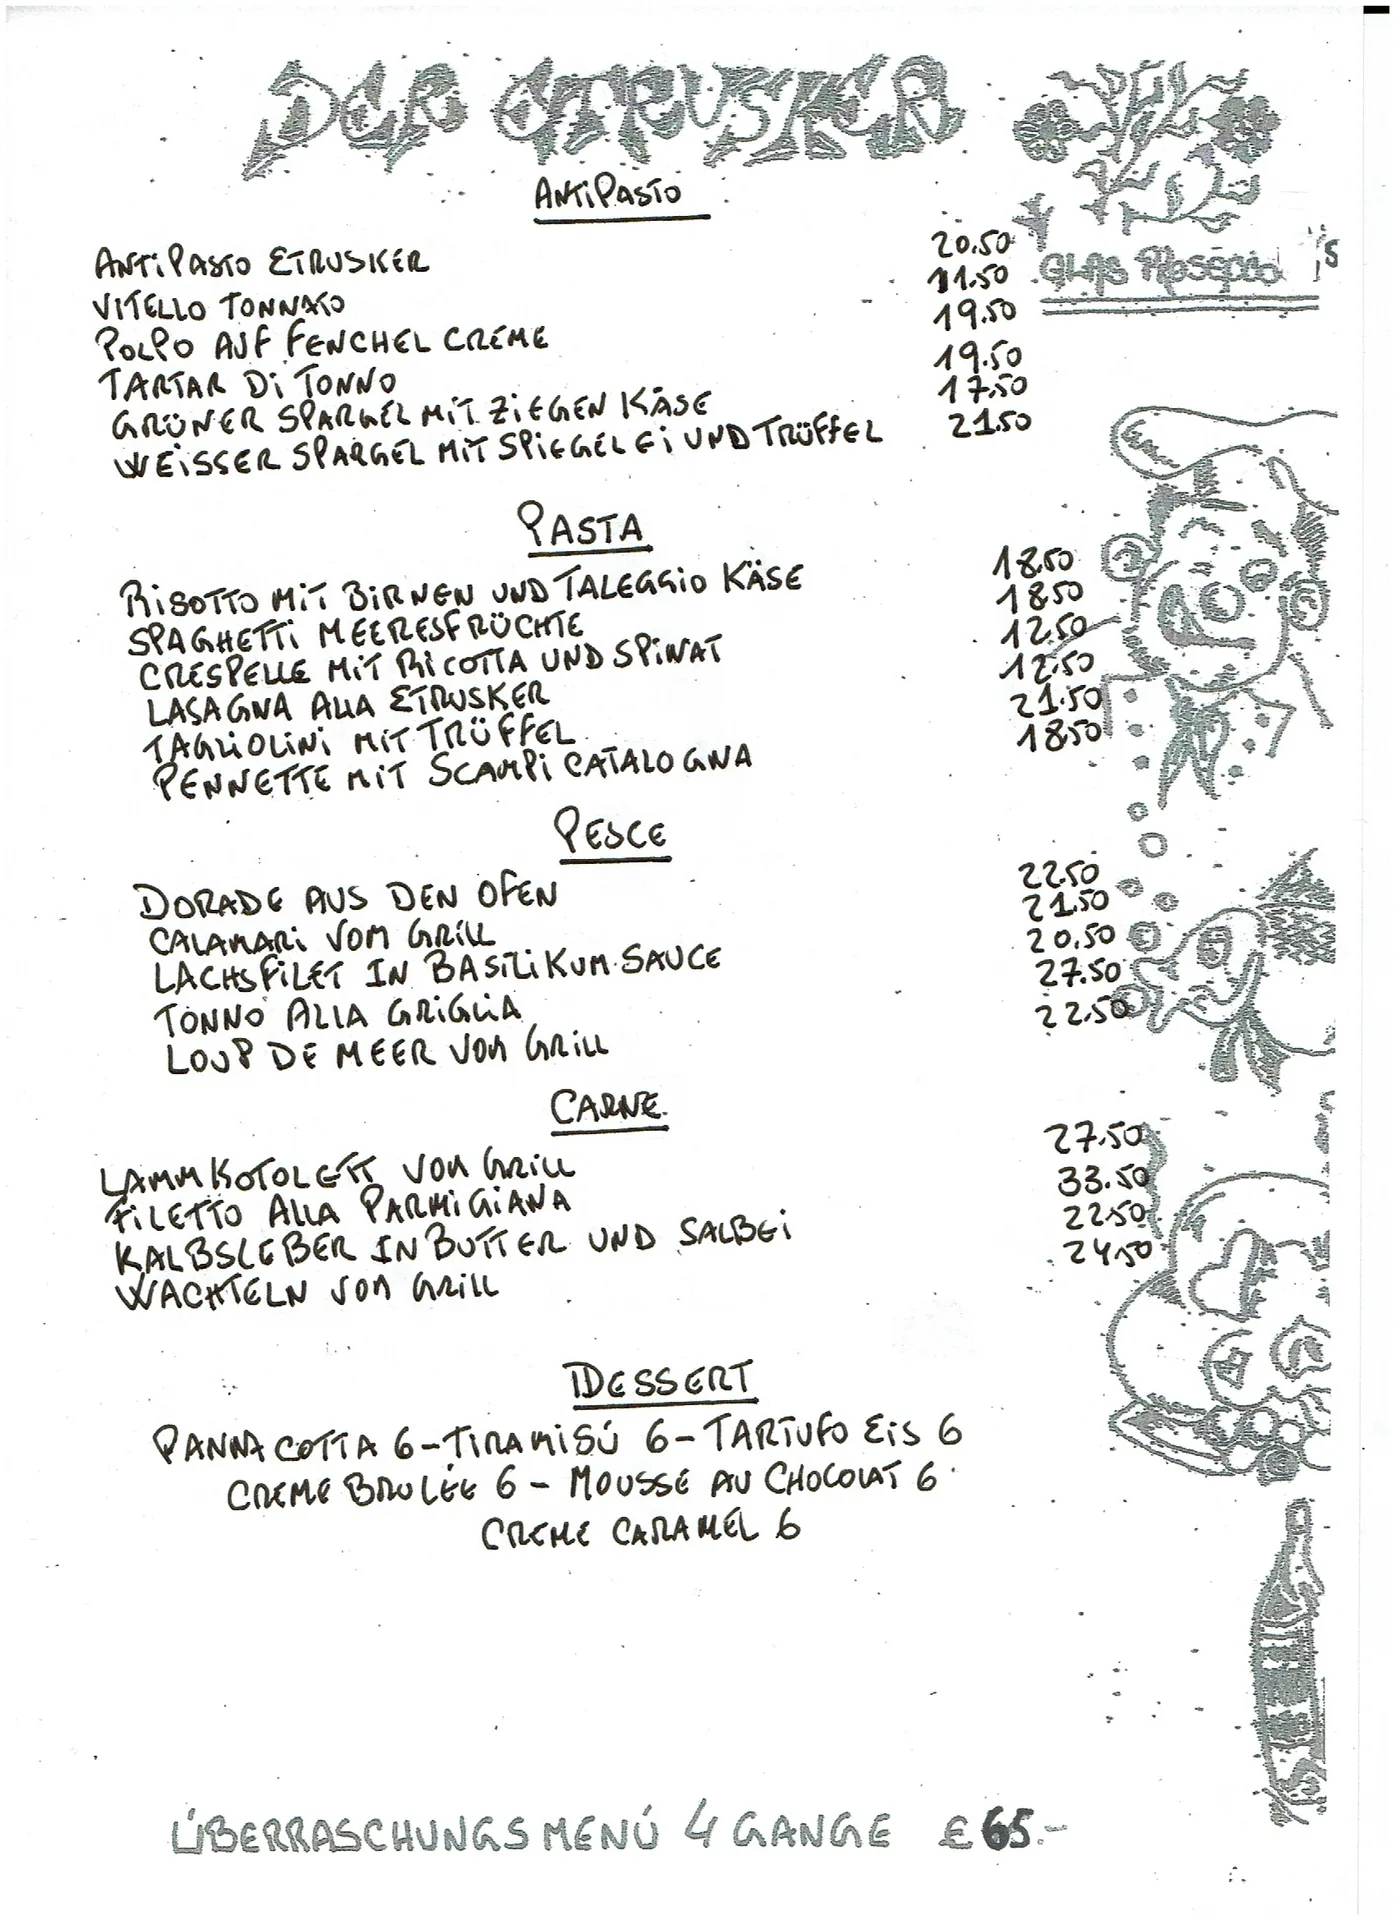 DER ETRUSKER
ANTIPASTO
ANTIPASTO ETRUSKER 20.50
VITELLO TONNATO 11.50
POLPO AUF FENCHEL CREME 19.50
TARTAR DI TONNO 19.50
GRÜNER SPARGEL MIT ZIEGEN KÄSE 17.50
WEISSER SPARGEL MIT SPIEGEL EI UND TRÜFFEL 21.50
GLAS PROSECCO
PASTA
RISOTTO MIT BIRNEN UND TALEGGIO KÄSE 18.50
SPAGHETTI MEERESFRÜCHTE 18.50
CRESPELLE MIT RICOTTA UND SPINAT 12.50
LASAGNA ALLA ETRUSKER 12.50
TAGLIOLINI MIT TRÜFFEL 21.50
PENNETTE MIT SCAMPI CATALOGNA 18.50
PESCE
DORADE AUS DEN OFEN 22.50
CALAMARI VOM GRILL 21.50
LACHSFILET IN BASILIKUM SAUCE 20.50
TONNO ALLA GRIGLIA 27.50
LOUP DE MEER VOM GRILL 22.50
CARNE
LAMMKOTOLETT VOM GRILL 27.50
FILETTO ALLA PARMIGIANA 33.50
KALBSLEBER IN BUTTER UND SALBEI 22.50
WACHTELN VOM GRILL 24.50
DESSERT
PANNA COTTA 6-TIRAMISÚ 6-TARTUFO EIS 6
CREME BRULÉE 6 - MOUSSE AU CHOCOLAT 6
CREME CARAMEL 6
ÜBERRASCHUNGSMENÚ 4 GANGE £ 65.-